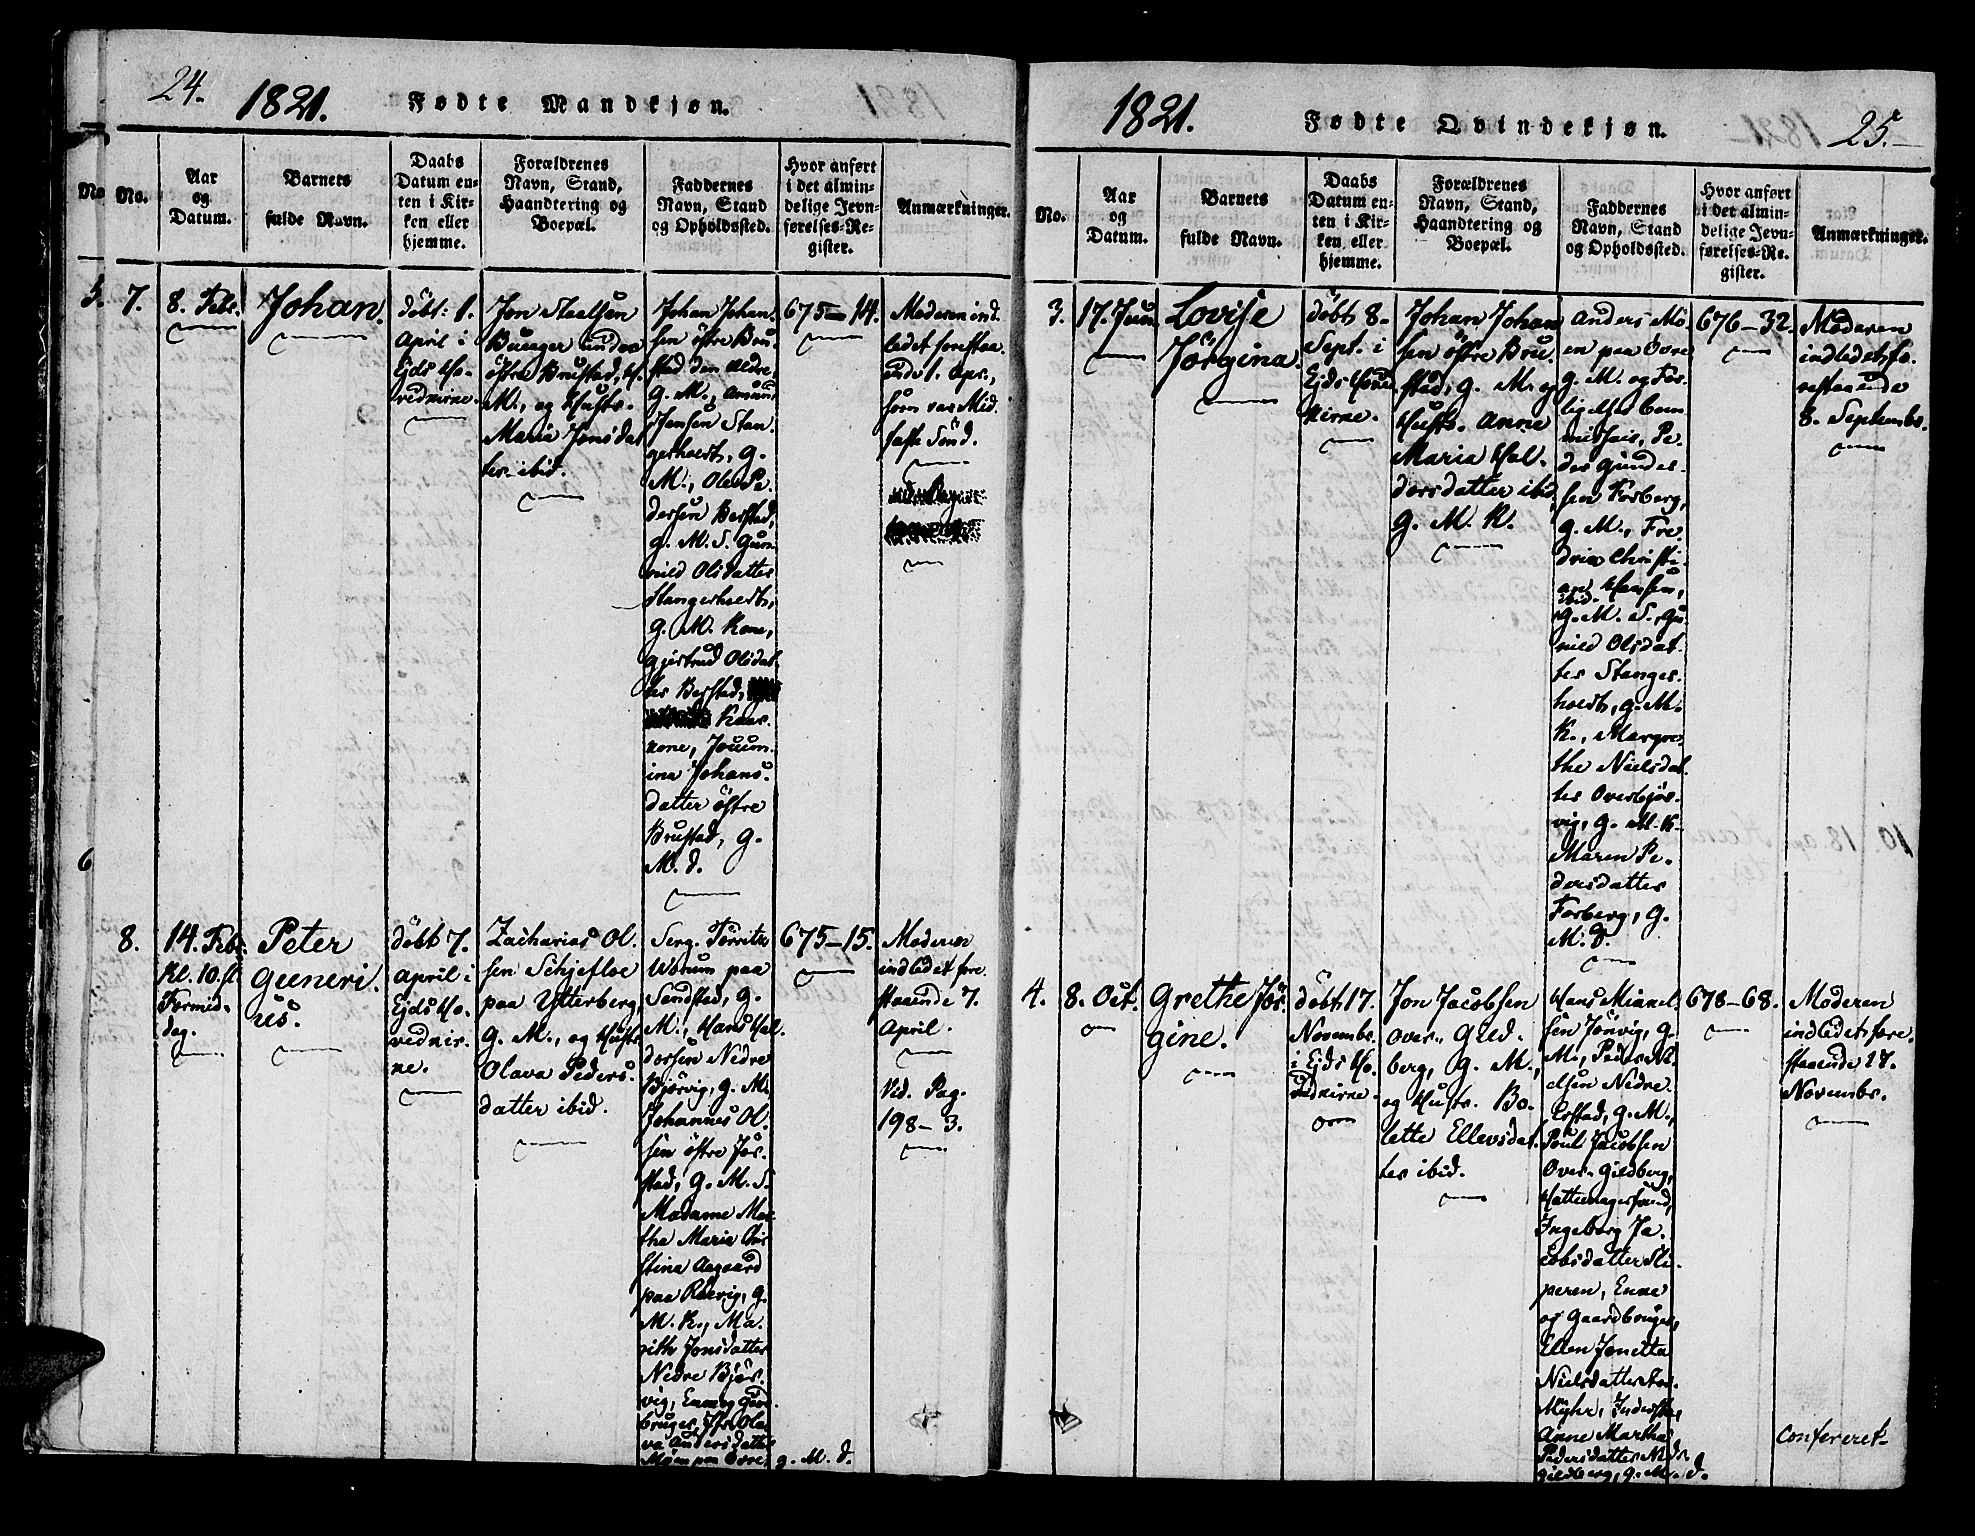 24.
1821.
Fødte Mandkjøn.
No
No.
Aar
og
Datum.
Barnets
fulde Navn.
Daabs
Datum en-
ten i Kir-
ken eller
hjemme.
Forældrenes
Navn, Stand,
Haandtering og
Boepæl.
Faddernes
Navn, Stand
og Opholdssted.
Hvor anført
i det almin-
delige Jevn-
førelses-Re-
gister.
Anmærkninger.
5.
7.
8. Febr.
Johan.
döbt: 1.
April i
Ejds Ho-
vedkirke.
Jon Staalsen
Bruger under
östre Brustad, H.
M., og Hustr.
Maria Jonsdat
ter ibid.
Johan Johan
sen östre Bru
stad den Ældre,
G. M., Amund
Jensen Stan
gerholdt, G.
M., Ole Pe
dersen Berstad,
G. M. S. Gun
nild Olsdatter
Stangerholdt,
G. M. Kone,
Gjertrud Olsdat
ter Berstad,
Kaar
kone,
ina Johans
datter östre
Brustad, G.
M. d.
675-14.
Moderen ind
ledet forestaa
ende 1. Apr.,
som var Mid
faste Sönd.
6
8.
14. Febr.
Kl. 10. sl.
Formid
dag.
Peter
Guneri
us.
döbt 7.
April i
Ejds Ho-
vedkir-
ke.
Zacharias Ol
sen Schjefloe
paa Ytterberg,
G. M., og Hustr.
Olava Peders
datter ibid.
Serg. Torrits
Worum paa
Sandstad, G.
M., Hans Hal
dorsen Nedre
Bjørvig, G. M.
Johannes Ol
sen östre Jör
stad, G. M. S.
Madame Mar
tha Maria Chri
stina Aagaard
paa Rörvig, G.
M. K., Ma
rith Jonsdatter
Nedre Björ
vig, Enke og Gaard
bruger, Ola
va Andersdatter
Möen paa Övre, G. M. d.
675-15.
Moderen
indledet fore
staaende 7.
April.
Vid. Pag.
198-3.
1821.
Fødte Qvindekjøn.
25.
No.
Aar
og
Datum.
Barnets
fulde Navn.
Daabs
Datum en-
ten i Kir-
ken eller
hjemme.
Forældrenes
Navn, Stand,
Haandtering og
Boepæl.
Faddernes
Navn, Stand
og Opholdssted.
Hvor anført
i det almin-
delige Jevn-
førelses-Re-
gister.
Anmærkninger.
3.
17. Jun.
Lovise
Jörgina.
döbt 8.
Sept. i
Ejds Hoved
kirke.
Johan Johan
sen östre Bru
stad, G. M. og
Hustr. Anne
Maria Hal
dorsdatter ibid,
G. M. K.
Anders Mö
en paa Övre
G. M. og For
ligelses Com
missair, Pe
der Gunder
sen Forberg,
G. M., Fre
drik Christi
an Hansen,
ibid.
G. M. S. Gu
nild Olsdat
ter Stanger
holdt, G. M.
K., Margre
the Nielsdat
ter Overbjör
vig, G. M. K.
Maren Pe
dersdatter
Forberg, G.
M. d.
676-32.
Moderen
indledet fo
restaaende
8. Septembr.
4.
8. Oct.
Grethe Jör
gine.
döbt 17.
Novembr.
i Ejds Ho
vedkirke.
Jon Jacobsen
Over-Gild
berg, G. M.,
og Hustr. Bo
lette Ellevsdat
ter ibid.
Hans Mikkel
sen Jönvig, G.
M., Peder Ni
elsen Nedre
Erstad, G. M.,
Poul Jacobsen
Over-Gildberg,
Hattemagersvend,
Ingeborg Ja
cobsdatter Sli
peren, Enke
og Gaardbruger,
Ellen Jonetta
Nielsdatter
Myhr, Inderöen,
Anne Martha
Pedersdatter Ned.
Gildberg, G. M. d.
678-68.
Moderen
indledet fore
staaende 17.
Novembr.
Confereret